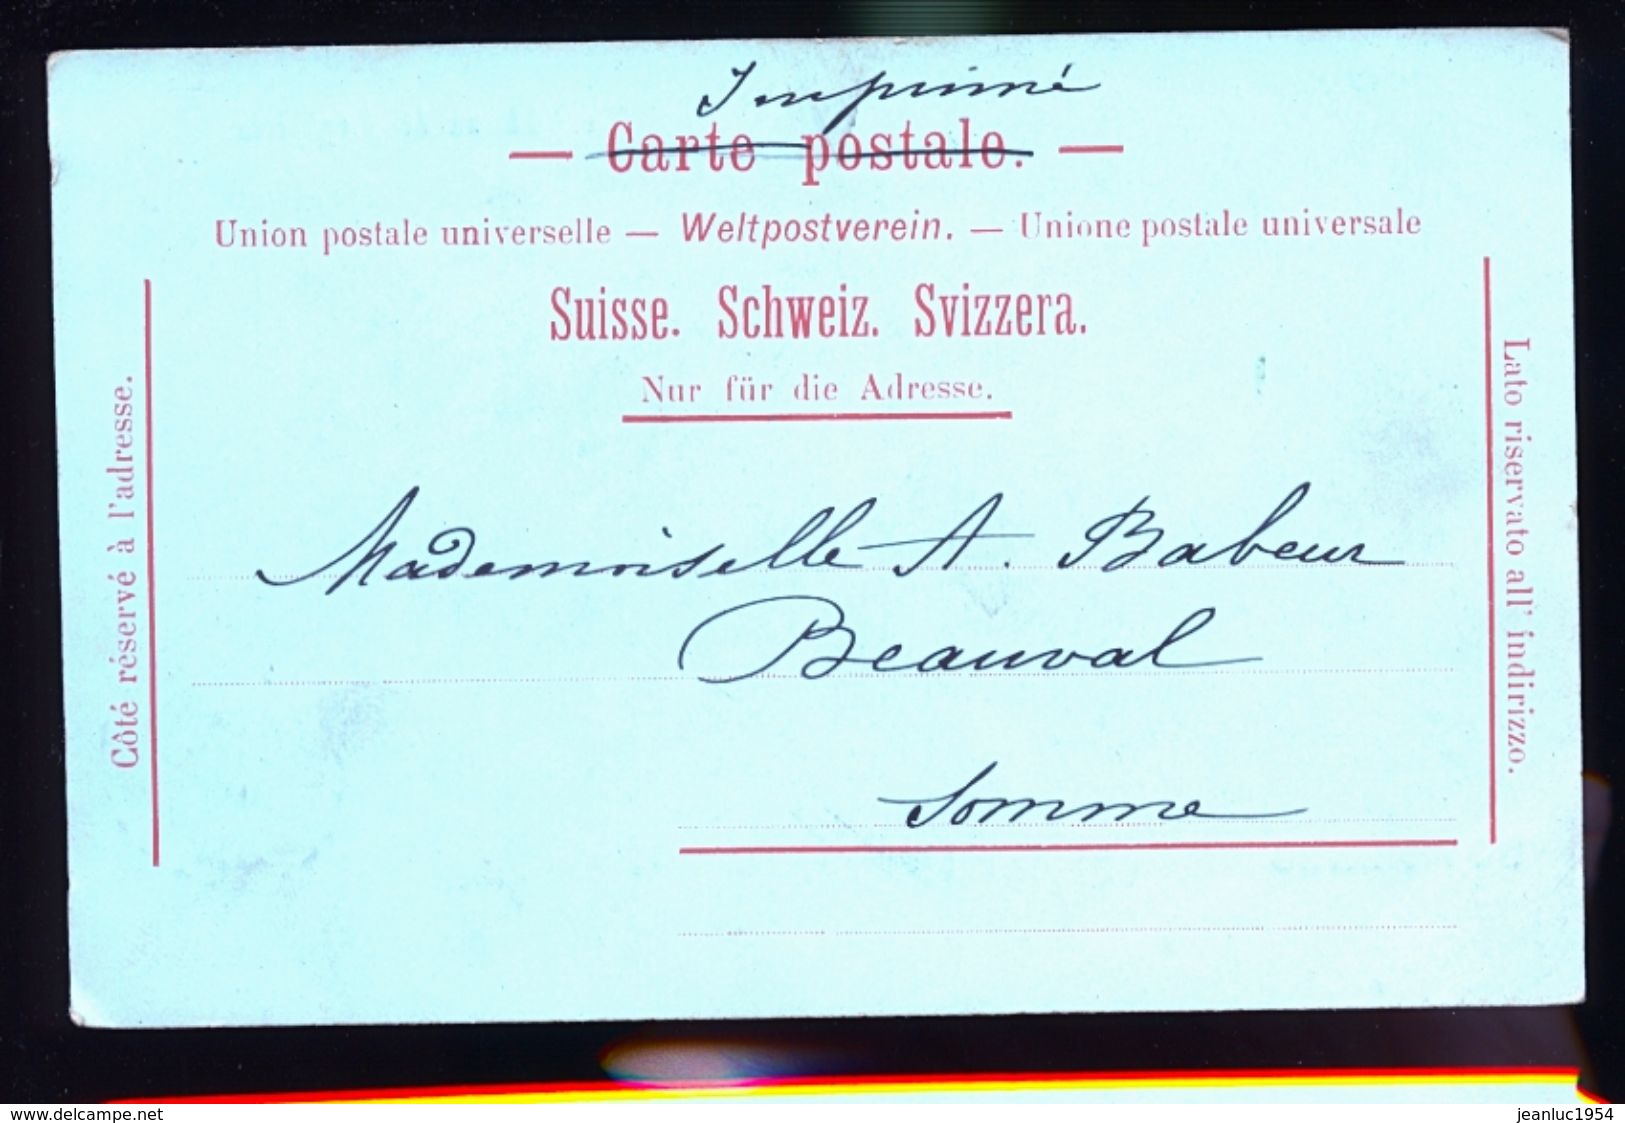 Imprimé
— Carte postale. —
Union postale universelle — Weltpostverein. — Unione postale universale
Suisse. Schweiz. Svizzera.
Nur für die Adresse.
Côté réservé à l'adresse.
Lato riservato all' indirizzo.
Mademoiselle A. Babeur
Beauval
Somme
www.delcampe.net
jeanluc1954